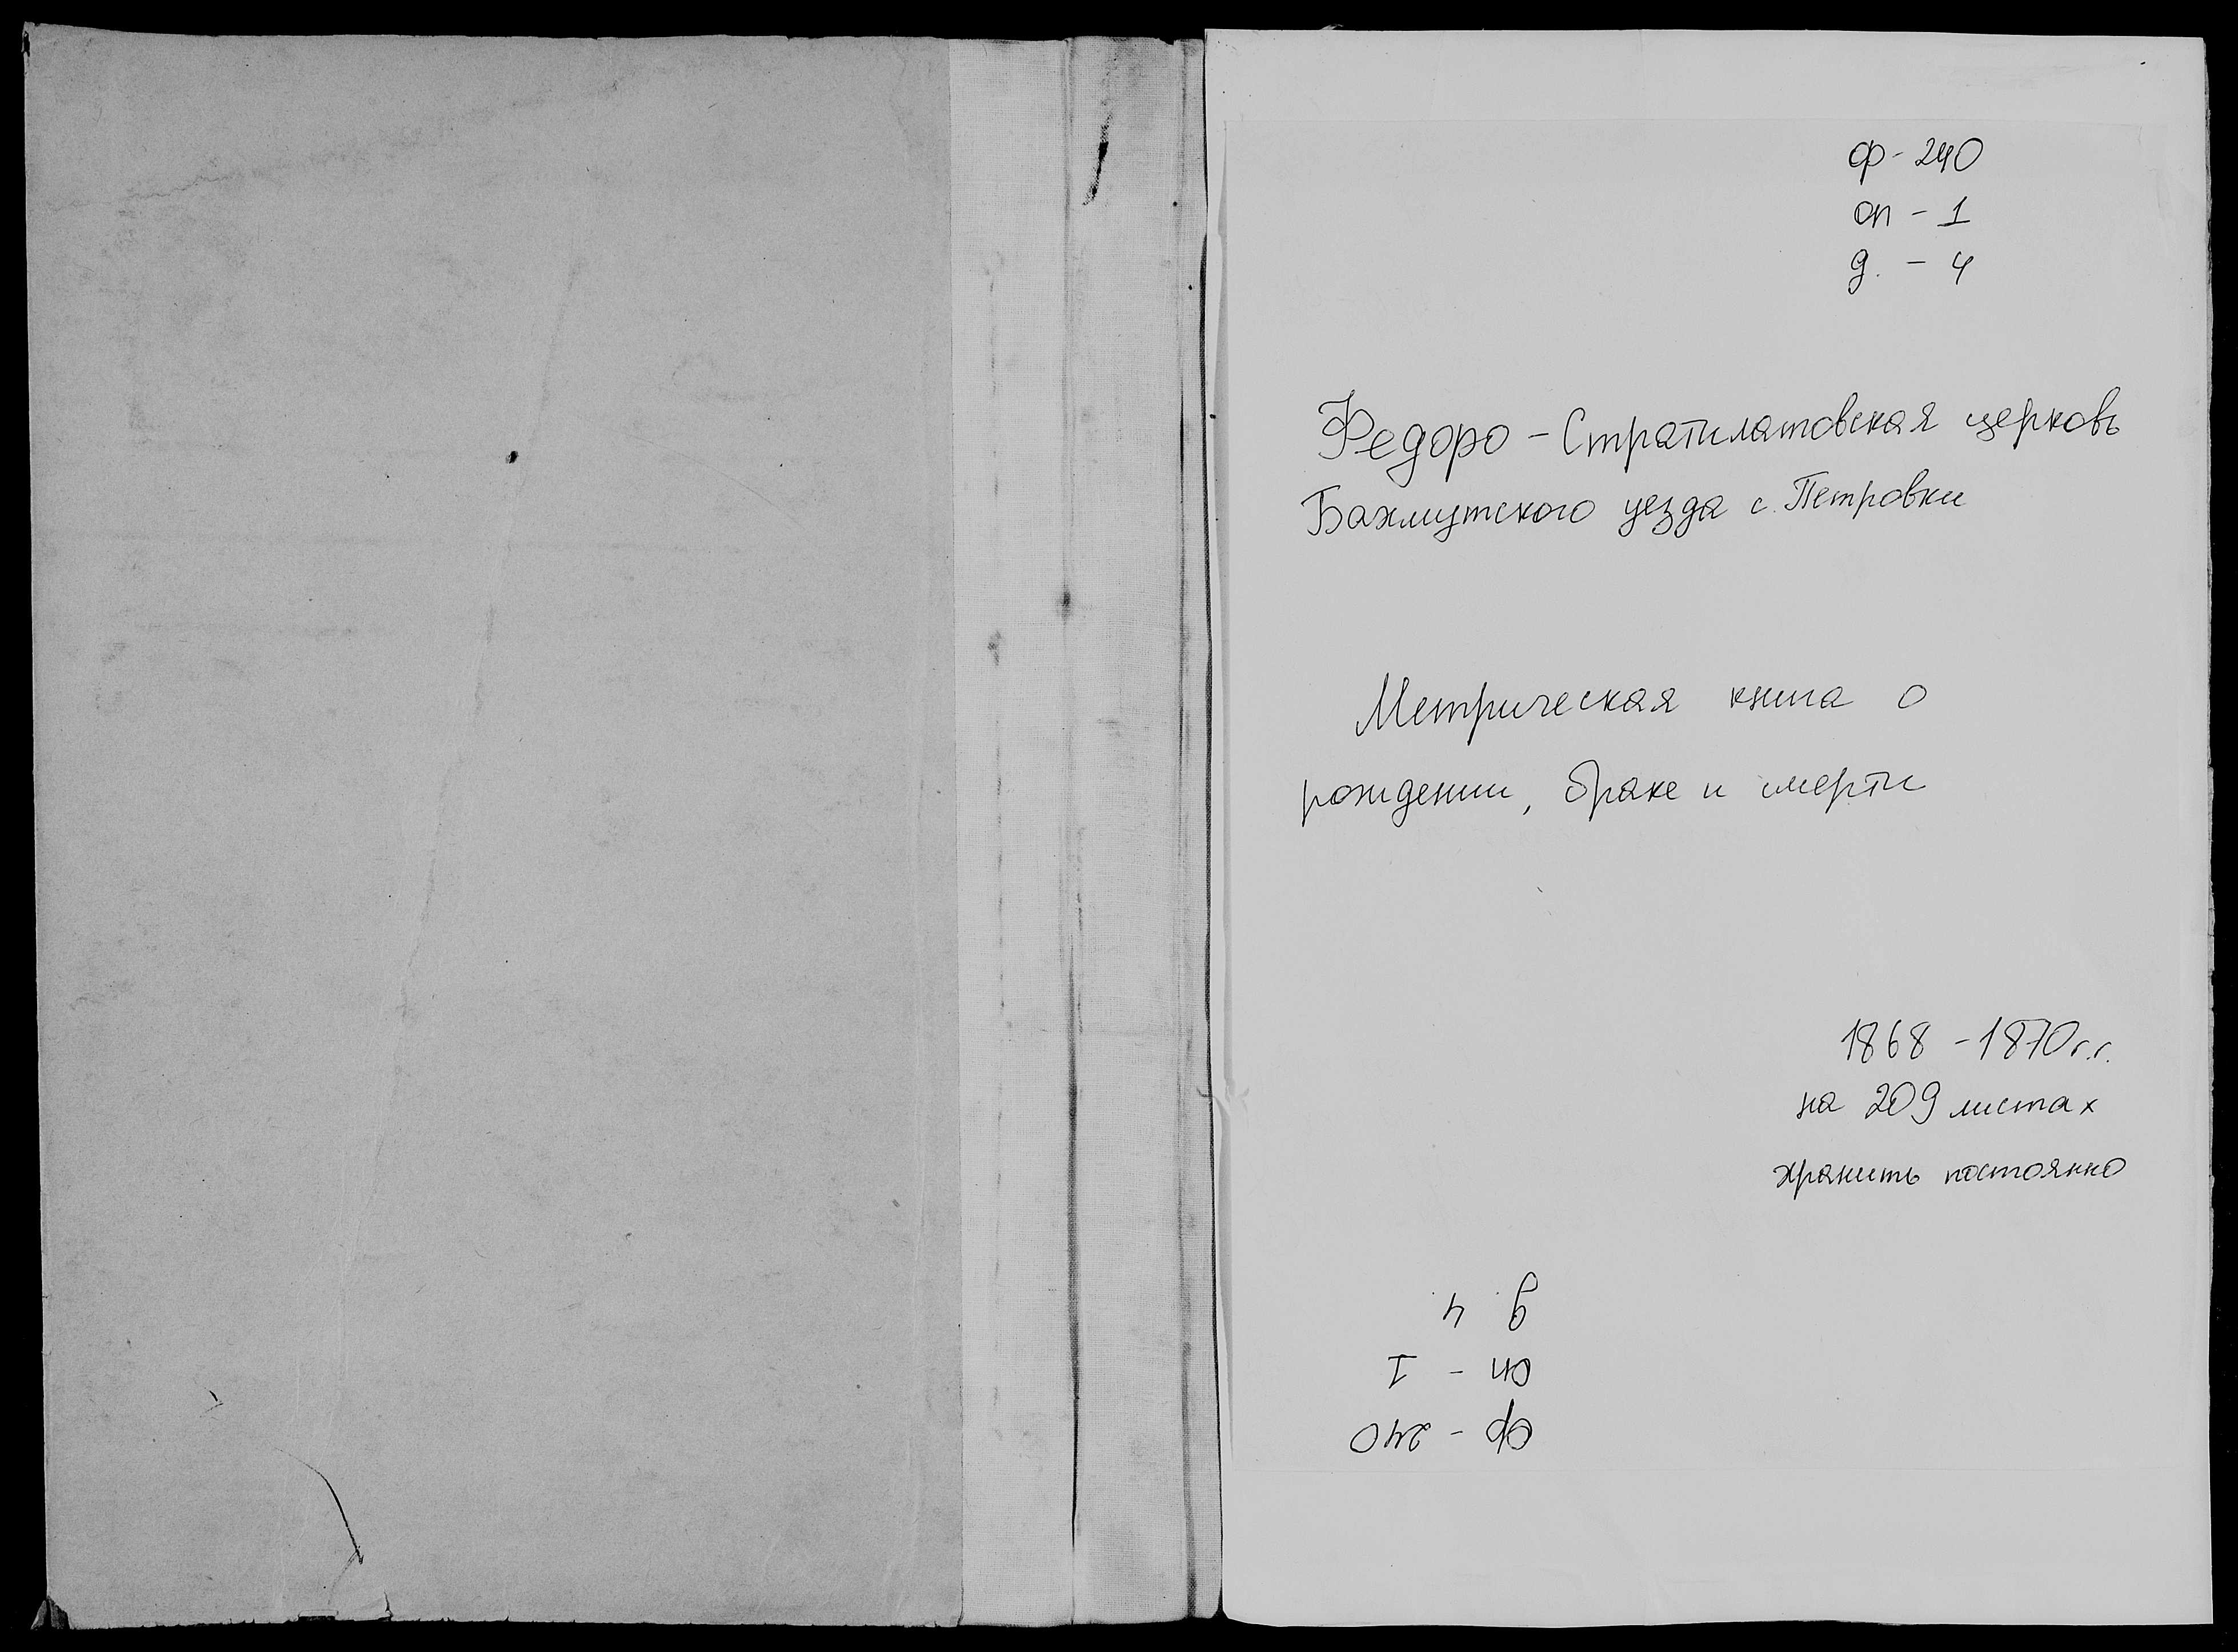 ф - 240
оп - 1
д. - 4
Федоро - Стратилатовская церковь
Бахмутского уезда с. Петровки
Метрическая книга о
рождении, браке и смерти
1868 - 1870 г.г.
на 209 листах
хранить постоянно
ф - 240
оп - 1
д 4